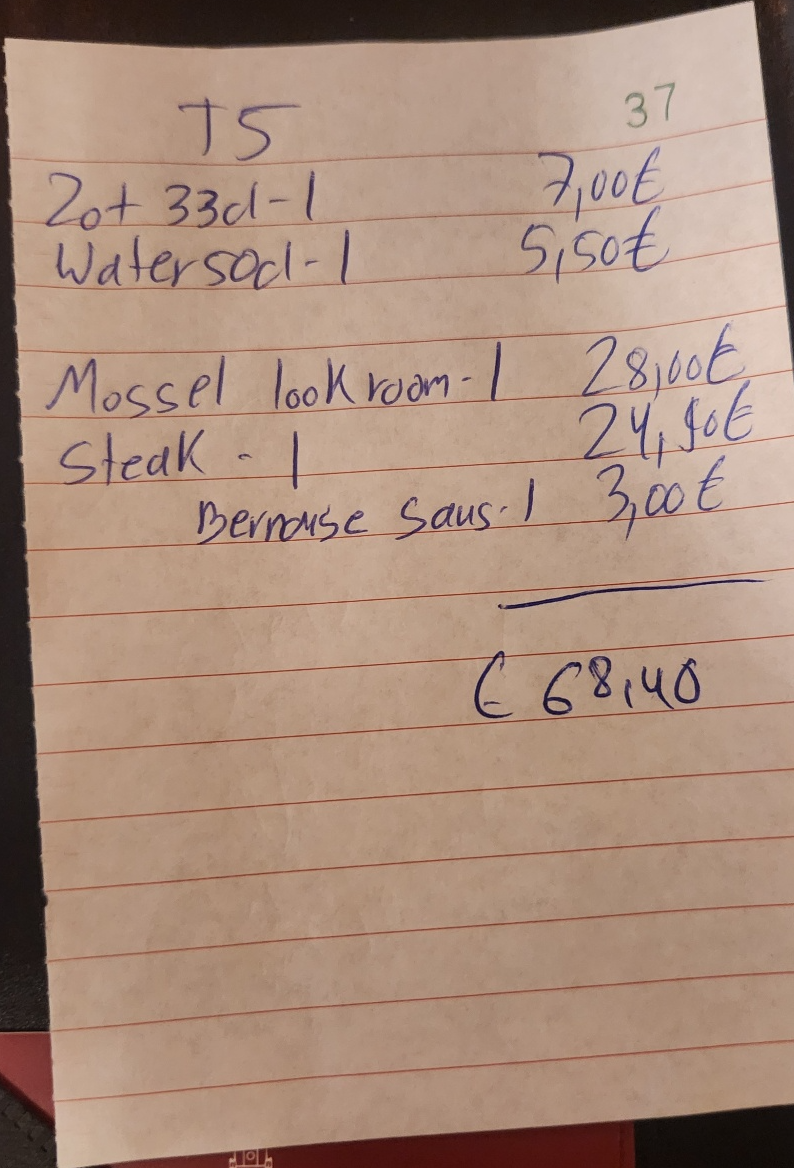 T5 37
Zot 33cl-1 7,00€
Water 50cl-1 5,50€
Mossel look room-1 28,00€
Steak - 1 24,90€
Bernaise saus-1 3,00€
€ 68,40